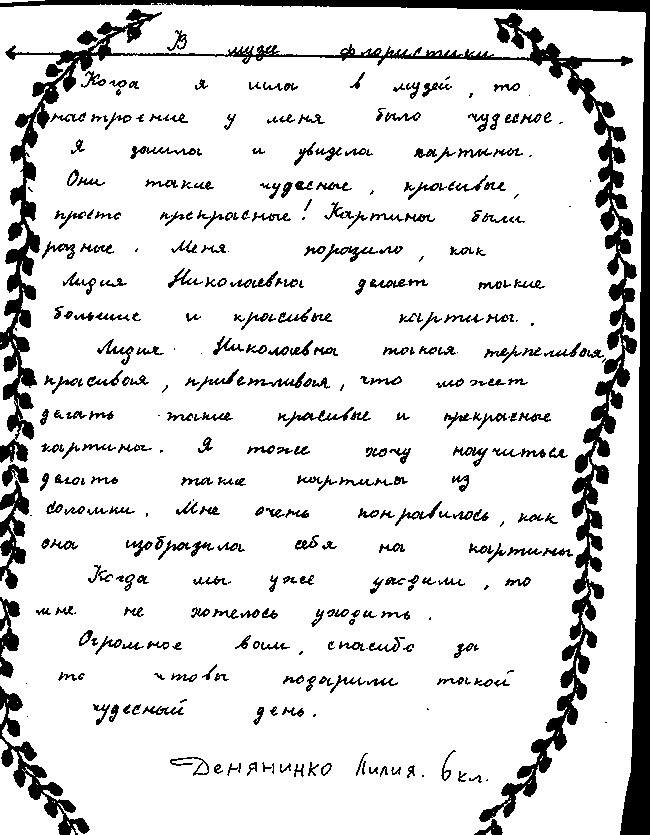 В музе флористики
Когда я шла в музей, то
настроение у меня было чудесное.
Я зашла и увидела картины.
Они такие чудесные, красивые,
просто прекрасные! Картины были
разные. Меня поразило, как
Лидия Николаевна делает такие
большие и красивые картины.
Лидия Николаевна такая терпеливая,
красивая, приветливая, что может
делать такие красивые и прекрасные
картины. Я тоже хочу научиться
делать такие картины из
соломки. Мне очень понравилось, как
она изобразила себя на картины
Когда мы уже уходили, то
мне не хотелось уходить.
Огромное вам, спасибо за
то что вы подарили такой
чудесный день.
Денянинко Лилия. 6 кл.